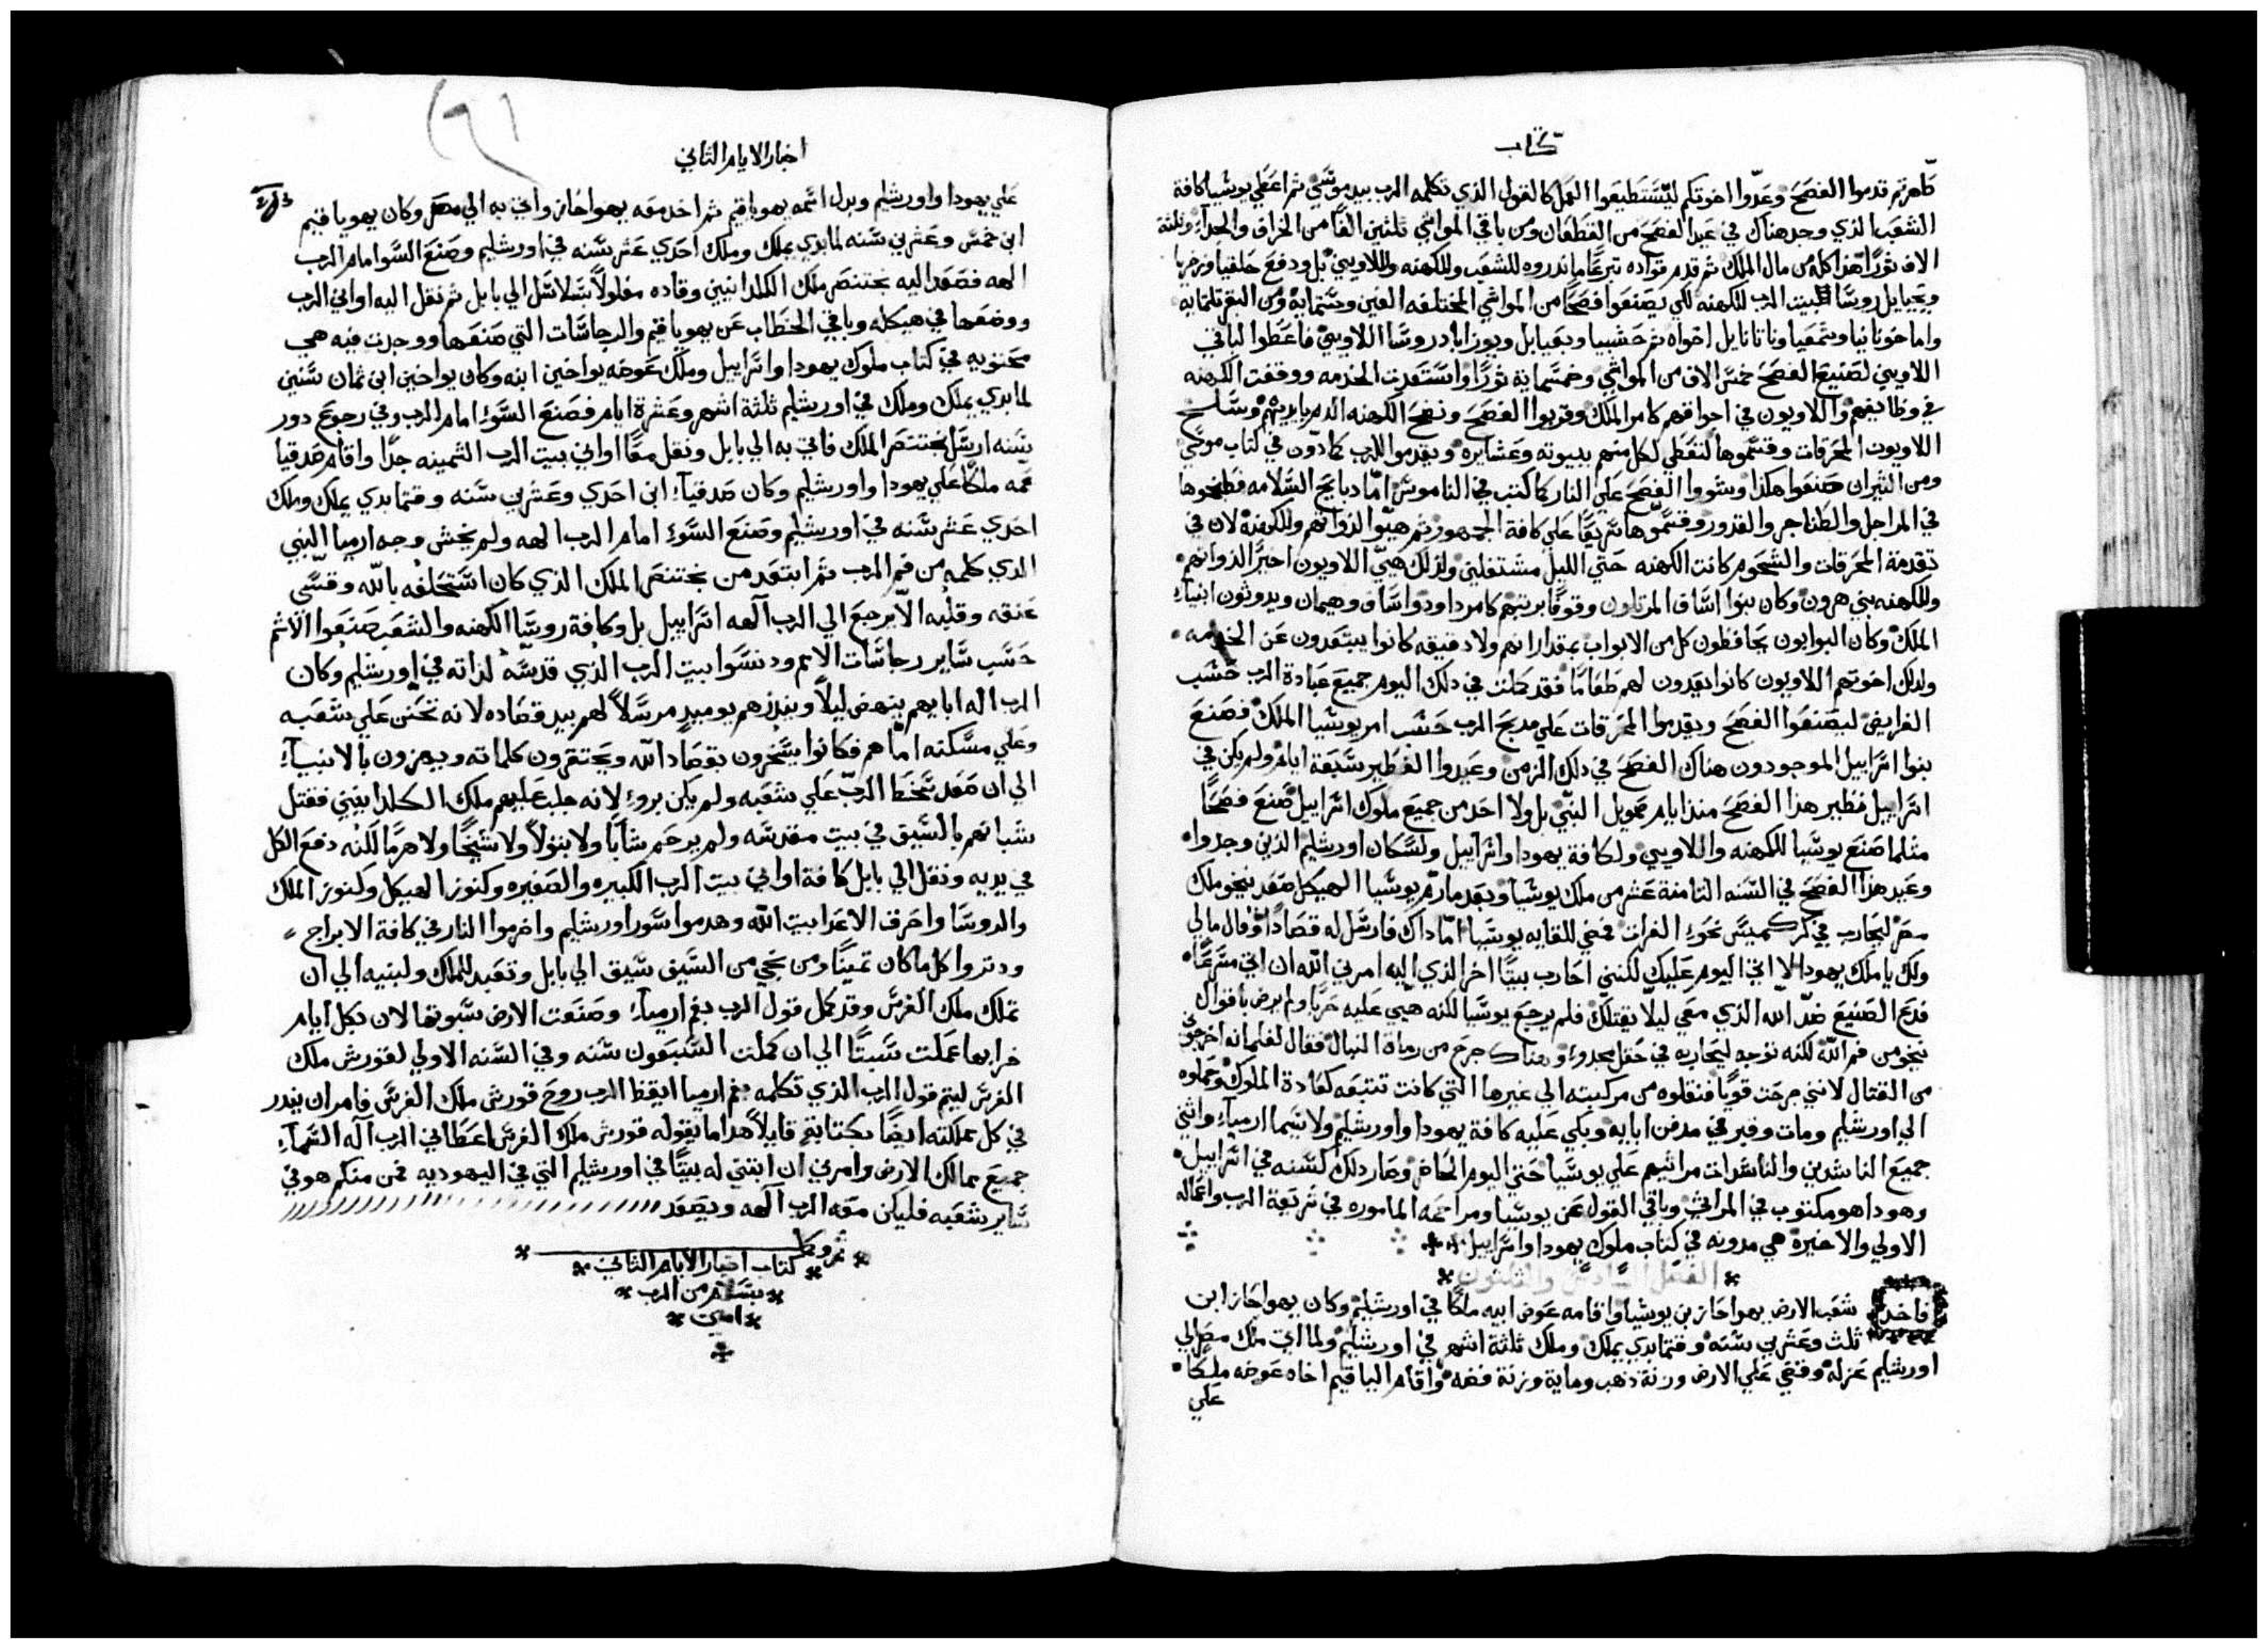 كتاب
طاهرتم قدموا الفصح وعدّوا اخوتكم ليستطيعوا العمل كالقول الذي تكلمه الرب بيد موسي ثم اعطي يوشيا كافة
الشعب الذي وجد هناك في عيد الفصح من القطعان ومن باقي المواشي ثلثين الفًا من الخراف والجدآء وثلثة
الاف ثورًا هذا كله من مال الملك ثم قدم قواده تبرعًا ما نذروه للشعب وللكهنه واللاويين بل ودفع حلفيا وزخريا
ويحيايل روسًا لبيت الرب للكهنه لكي يصنعوا فصحًا من المواشي المختلفه الفين وستماية ومن البقر ثلثمايه
واما خونانيا وشمعيا وناتانايل اخواه ثم حشبيا ويعيايل ويوزاباد روسا اللاويين فاعطوا لباقي
اللاويين لصنيع الفصح خمس الاف من المواشي وخمسماية ثورًا واستعدت الخدمه ووقفت الكهنه
في وظايفهم واللاويون في اجواقهم كامر الملك وقربوا الفصح ونضح الكهنه الدم بايديهم وسلخ
اللاويون المحرقات وقسموها لتعطي لكل منهم ببيوته وعشايره ويقدموا للرب كما دّون في كتاب موسي
ومن الثيران صنعوا هكذا وشووا الفصح علي النار كما كتب في الناموس امّا دبايح السلامه فطبخوها
في المراجل والطناجر والقدور وقسموها سريعًا علي كافة الجمهور ثم هيّوا لذواتهم وللكهنة لان في
تقدمة المحرقات والشحوم كانت الكهنه حتي الليل مشتغلين ولذلك هيّ اللاويون اخيرًا لذواتهم
وللكهنه بني هرون وكان بنوا اساف المرتلون وقوفًا برتبهم كامر داود واساف وهيمان ويدوثون انبيآء
الملك وكان البوابون يحافظون كل من الابواب بمقداراتهم ولا دقيقه كانوا يبتعدون عن الخدمه
ولذلك اخوتهم اللاويون كانوا يعدون لهم طعامًا فقد كملت في ذلك اليوم جميع عبادة الرب حسب
الفرايض ليصنعوا الفصح ويقدموا المحرقات علي مدبح الرب حسب امر يوشيا الملك فصنع
بنوا اسراييل الموجودون هناك الفصح في ذلك الزمن وعيدوا الفطير سبعة ايام ولم يكن في
اسراييل نظير هذا الفصح منذ ايام صمويل النبي بل ولا احد من جميع ملوك اسراييل صنع فصحًا
مثلما صنع يوشيا للكهنه واللاويين ولكافة يهودا واسراييل ولسكان اورشليم الذين وجدوا
وعيد هذا الفصح في السنه الثامنة عشر من ملك يوشيا وبعد ما رمّ يوشيا الهيكل صعد نيخو ملك
مصر ليحارب في كركميس نحو الفرات فمضي للقايه يوشيا امّا ذاك فارسل له قصادًا وقال مالي
ولك يا ملك يهودا لا اتي اليوم عليك لكنني احارب بيتًا اخر الذي اليه امرني الله ان اتي مسرعًا
فدع الصنيع ضدّ الله الذي معي ليلّا يقتلك فلم يرجع يوشيا لكنه هيّي عليه حربًا ولم يرض باقوال
نيخو من فم الله لكنه توجه ليحاربه في حقل مجدو وهناك جرح من رماة النبال فقال لغلمانه اخرجوني
من القتال لانني جرحت قويًا فنقلوه من مركبته الي غيرها التي كانت تتبعه كعادة الملوك وحملوه
الي اورشليم ومات وقبر في مدفن ابايه وبكي عليه كافة يهودا واورشليم ولا سيما ارميآء واثني
جميع الناشدين والناشدات مراثيهم علي يوشيا حتي اليوم الحاضر وصار ذلك كسنه في اسراييل
وهوذا هو مكتوب في المراثي وباقي القول عن يوشيا ومراحمه الماموره في شريعة الرب واعماله
الاولي والاخيرة هي مدونه في كتاب ملوك يهودا واسراييل
الفصل السادس والثلثون
فاخذ شعب الارض يهواحاز بن يوشيا واقامه عوض ابيه ملكًا في اورشليم وكان يهواحاز ابن
ثلث وعشرين سنه وقتما بدي يملك وملك ثلثة اشهر في اورشليم ولما اتي ملك مصر الي
اورشليم عزله وقضي علي الارض وزنة ذهب وماية وزنة فضه واقام الياقيم اخاه عوضه ملكًا
علي
اخبار الايام الثاني
علي يهودا واورشليم وبدل اسمه يهوياقيم ثم اخذ معه يهواحاز واتي به الي مصر وكان يهوياقيم
ابن خمس وعشرين سنه لما بدي يملك وملك احدي عشر سنه في اورشليم وصنع السوا امام الرب
الهه فصعد اليه بختنصر ملك الكلدانيين وقاده مغلولًا بسلاسل الي بابل ثم نقل اليه اواني الرب
ووضعها في هيكله وباقي الخطاب عن يهوياقيم والرجاسات التي صنعها ووجدت فيه هي
محتويه في كتاب ملوك يهودا واسراييل وملك عوضه يواخين ابنه وكان يواخين ابن ثمان سنين
لما بدي يملك وملك في اورشليم ثلثة اشهر وعشرة ايام فصنع السوء امام الرب وفي رجوع دور
سنه ارسل بختنصر الملك فاتي به الي بابل ونقل معًا اواني بيت الرب الثمينه جدًا واقام صدقيا
عمه ملكًا علي يهودا واورشليم وكان صدقيآء ابن احدي وعشرين سنه وقتما بدي يملك وملك
احدي عشر سنه في اورشليم وصنع السوء امام الرب الهه ولم يخش وجه ارميا النبي
الذي كلمه من فم الرب ثم ابتعد من بختنصر الملك الذي كان استحلفه بالله وقسّي
عنقه وقلبه الّا يرجع الي الرب آله اسراييل بل وكافة روسا الكهنه والشعب صنعوا الاثم
حسب ساير رجاسات الامم ودنسوا بيت الرب الذي قدسه لذاته في اورشليم وكان
الرب اله ابايهم ينهض ليلًا وينذرهم يوميد مرسلًا لهم بيد قصاده لانه تحنن علي شعبه
وعلي مسكنه امّا هم فكانوا يسخرون بقصاد الله ويحتقرون كلماته ويهزون بالانبيآء
الي ان صعد سخط الربّ علي شعبه ولم يكن بروء لانه جلب عليهم ملك الكلدانيين فقتل
شبانهم بالسيف في بيت مقدسه ولم يرحم شابًا ولا بتولًا ولا شيخًا ولا هرمًا لكنه دفع الكل
في يديه ونقل الي بابل كافة اواني بيت الرب الكبيره والصغيره وكنوز الهيكل وكنوز الملك
والروسا واحرق الاعدا بيت الله وهدموا سور اورشليم واضرموا النار في كافة الابراج
ودثروا كل ما كان ثمينًا ومن نجي من السيف سيق الي بابل وتعبد للملك ولبنيه الي ان
تملك ملك الفرس وقد كمل قول الرب بفم ارميآء وصنعت الارض سبوتها لان بكل ايام
خرابها عملت سبتًا الي ان كملت السبعون سنه وفي السنه الاولي لقورش ملك
الفرس ليتم قول الرب الذي تكلمه بفم ارميا ايقظ الرب روح قورش ملك الفرس فامر ان ينذر
في كل مملكته ايضًا بكتابته قايلًا هذا ما يقوله قورش ملك الفرس اعطاني الرب آله السمآء
جميع ممالك الارض وامرني ان ابتني له بيتًا في اورشليم التي في اليهوديه فمن منكم هو في
ساير شعبه فليكن معه الرب آلهه ويصعد
تم وكمل
كتاب اخبار الايام الثاني
بسلام من الرب
امين